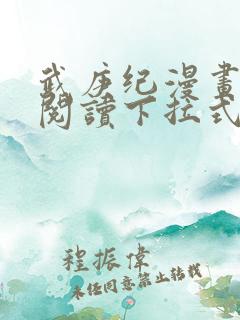 武庚纪漫畫
閱讀下拉式
程振偉
未经同意禁止转载